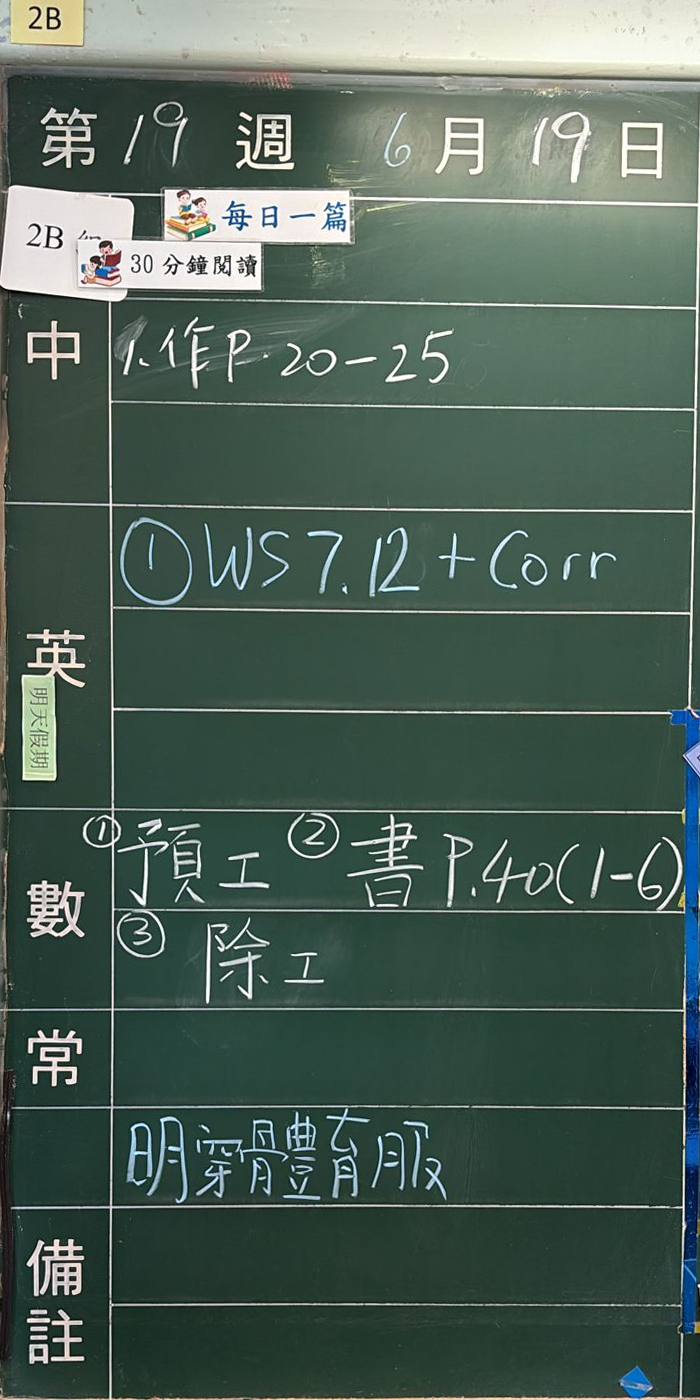 2B
第 19 週 6 月 19 日
每日一篇
2B
30分鐘閱讀
中
1.作P.20-25
英
①WS7.12+Corr
明天假期
數
①預工 ②書P.40(1-6)
③除工
常
明穿體育服
備註